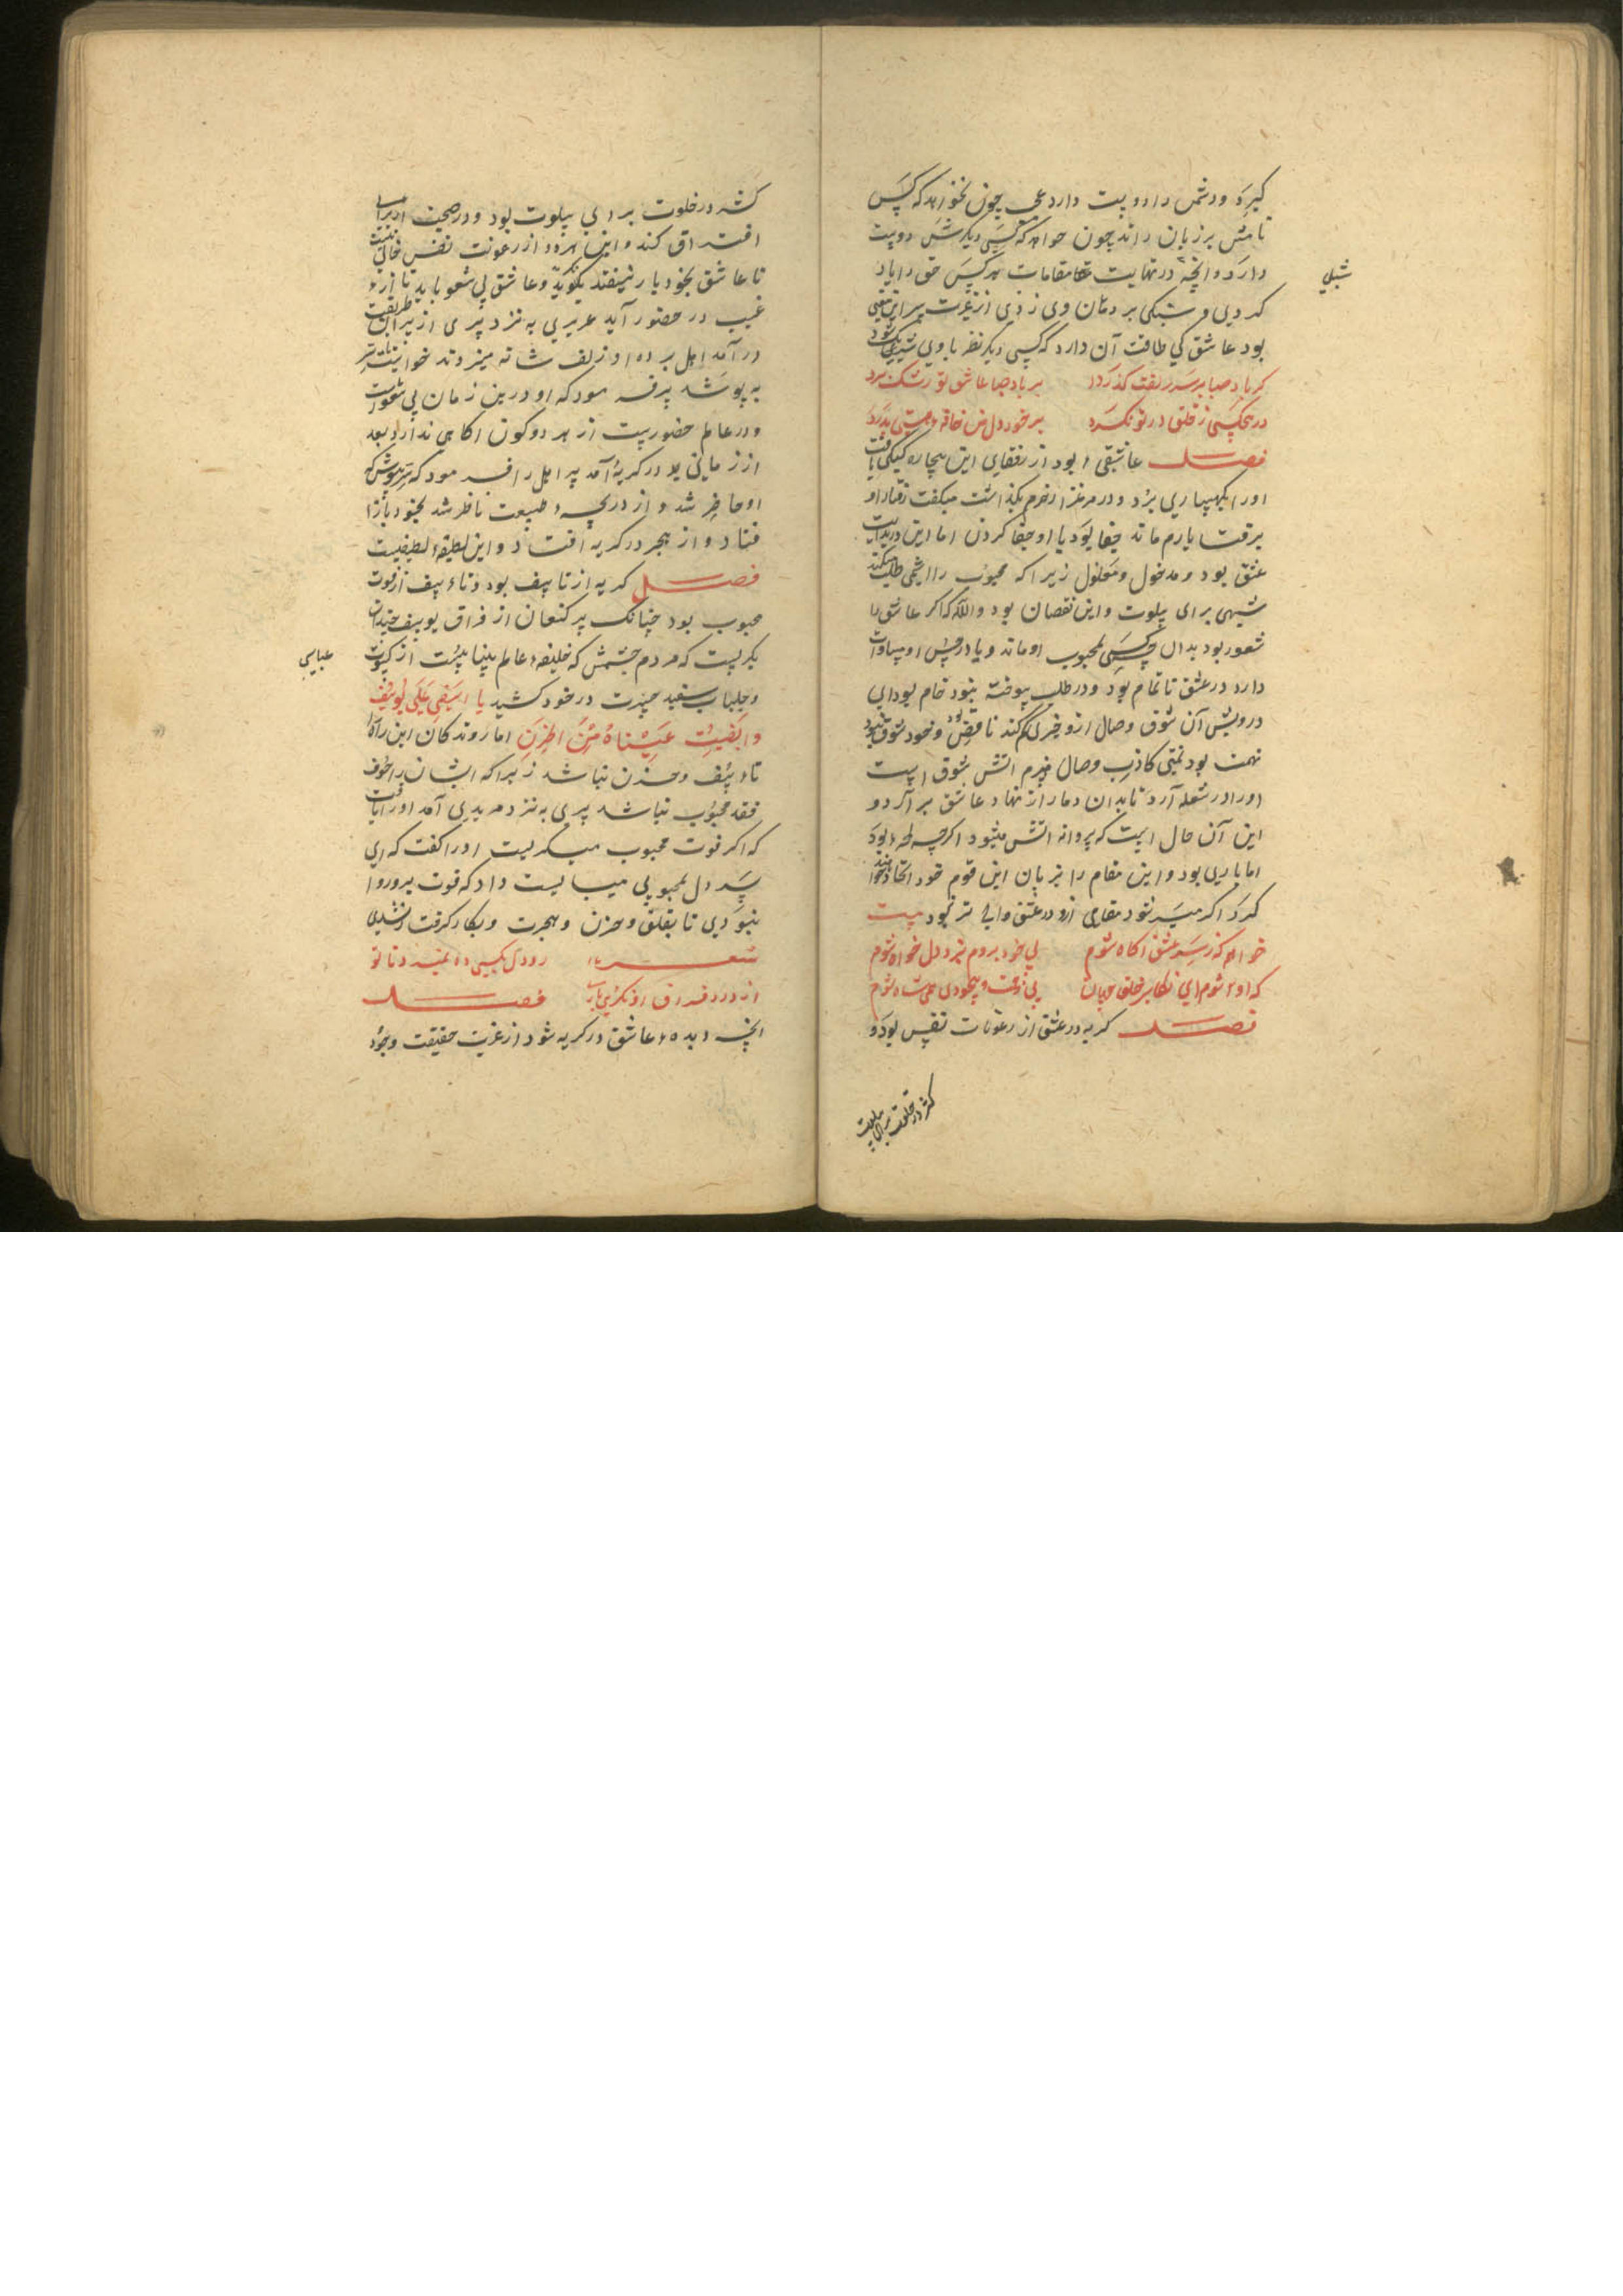 گیرد و دشمن را دوست دارد عجب چون نخواهد که کس
نامش بر زبان راند چون خواهد که کسی دیگرش دوست
دارد و آنچه در نهایت مقامات هر کس حق را یاد
شبلی
کردی و سنگی بر دهان وی زدی از غیرت
بود عاشق کی طاقت آن دارد که کسی دیگر نظر با وی
گر باد صبا بر سر زلفت گذرد بر باد صبا عاشق تو رشک برد
ور هیچ کسی ز خلق در تو نگرد بر خود دل من جامه هستی بدرد
فصل عاشقی بود از رفقای این بیچاره کبکی یافت
او را بکهساری برد و در مرغزار خرم بگذاشت میگفت رفتار او
برفتار یارم ماند جفا بود با او جفا کردن اما این در بدایت
عشق بود و مدخول و معلول زیرا که محبوب را شبهی طلب میکند
شبهی برای سلوت و این نقصان بود والله که اگر عاشق را
شعور بود بدان که کسی بمحبوب او ماند و یا در حسن او مساوات
دارد در عشق ناتمام بود و در طلب سوخته نبود خام بود ای
درویش آن شوق وصال ازو خبری گم کند ناقص بود و خود شوق نبود
تهمت بود تمنی کاذب وصال هیزم آتش شوق است
او را در شعله آرد تا بدان دمار از نهاد عاشق برآرد و
این آن حال است که پروانه آتش میشود اگرچه لمحه بود
اما باری بود و این مقام را بزبان این قوم خود اتحاد خوانند
گرد اگر میسر شود مقامی ازو در عشق والی تر نبود بیت
خواهم که ز سر عشق آگاه شوم بی خود بروم بنزد دلخواه شوم
که او شوم ای نگار خلقان بی زحمت و بیخودی شاه شوم
فصل گریه در عشق از رعونات نفس بود و
کثر در خلوت برای سلوت
کثر در خلوت برای سلوت بود و در صحبت از برای
افتراق کند و این هر دو از رعونت نفس خالی نیست
تا عاشق بخود باز نیفتد نگرید و عاشق بی شعور باید تا از
غیب در حضور آید عزیزی به نزد پیری از پیران طریقت
در آمد اهل پرده او زلف شانه میزدند خواستند تا سر
به پوشند پیر فرمود که او درین زمان بی شعورست
و در عالم حضوریست از هر دو کون آگاهی ندارد بعد
از زمانی در گریه آمد پیر اهل را فرمود که سر بپوش که
او حاضر شد و از دریچه طبیعت ناظر شد بخود باز
فتاد و از هجر در گریه افتاد و این لطیفه لطیفیست
فصل گریه از تأسف بود و تأسف از فوت
محبوب بود چنانک پیر کنعان از فراق یوسف چندان
بگریست که مردم چشمش که خلیفه عالم بیناییست از کسوت
عباسی
و جلباب سفید حیرت در خود کشید یا اسفی علی یوسف
وابیضت عیناه من الحزن اما روندگان این راه را
تأسف و حزن نباشد زیرا که ایشان را خوف
فقد محبوب نباشد پیری به نزد مریدی آمد او را یافت
که از فوت محبوب میگریست او را گفت که ای
پسر دل بمحبوبی میبایست داد که فوت برو روا
نبودی تا بقلق و حزن و هجرت و بکا گرفتار نشدی
شعر رو دل بکسی ده نمیرد تا تو
از درد فراق او نگریی باری فصل
آنچه دیده عاشق در گریه شود از غربت حقیقت وجود